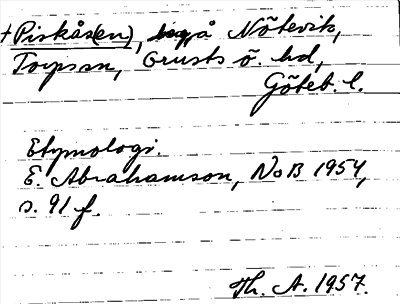 + Piskås(en), på Nötevik,
Torps sn, Orusts ö. hd,
Göteb. l.
Etymologi.
E. Abrahamson, NoB 1954,
s. 91 f.
Th. A. 1957.